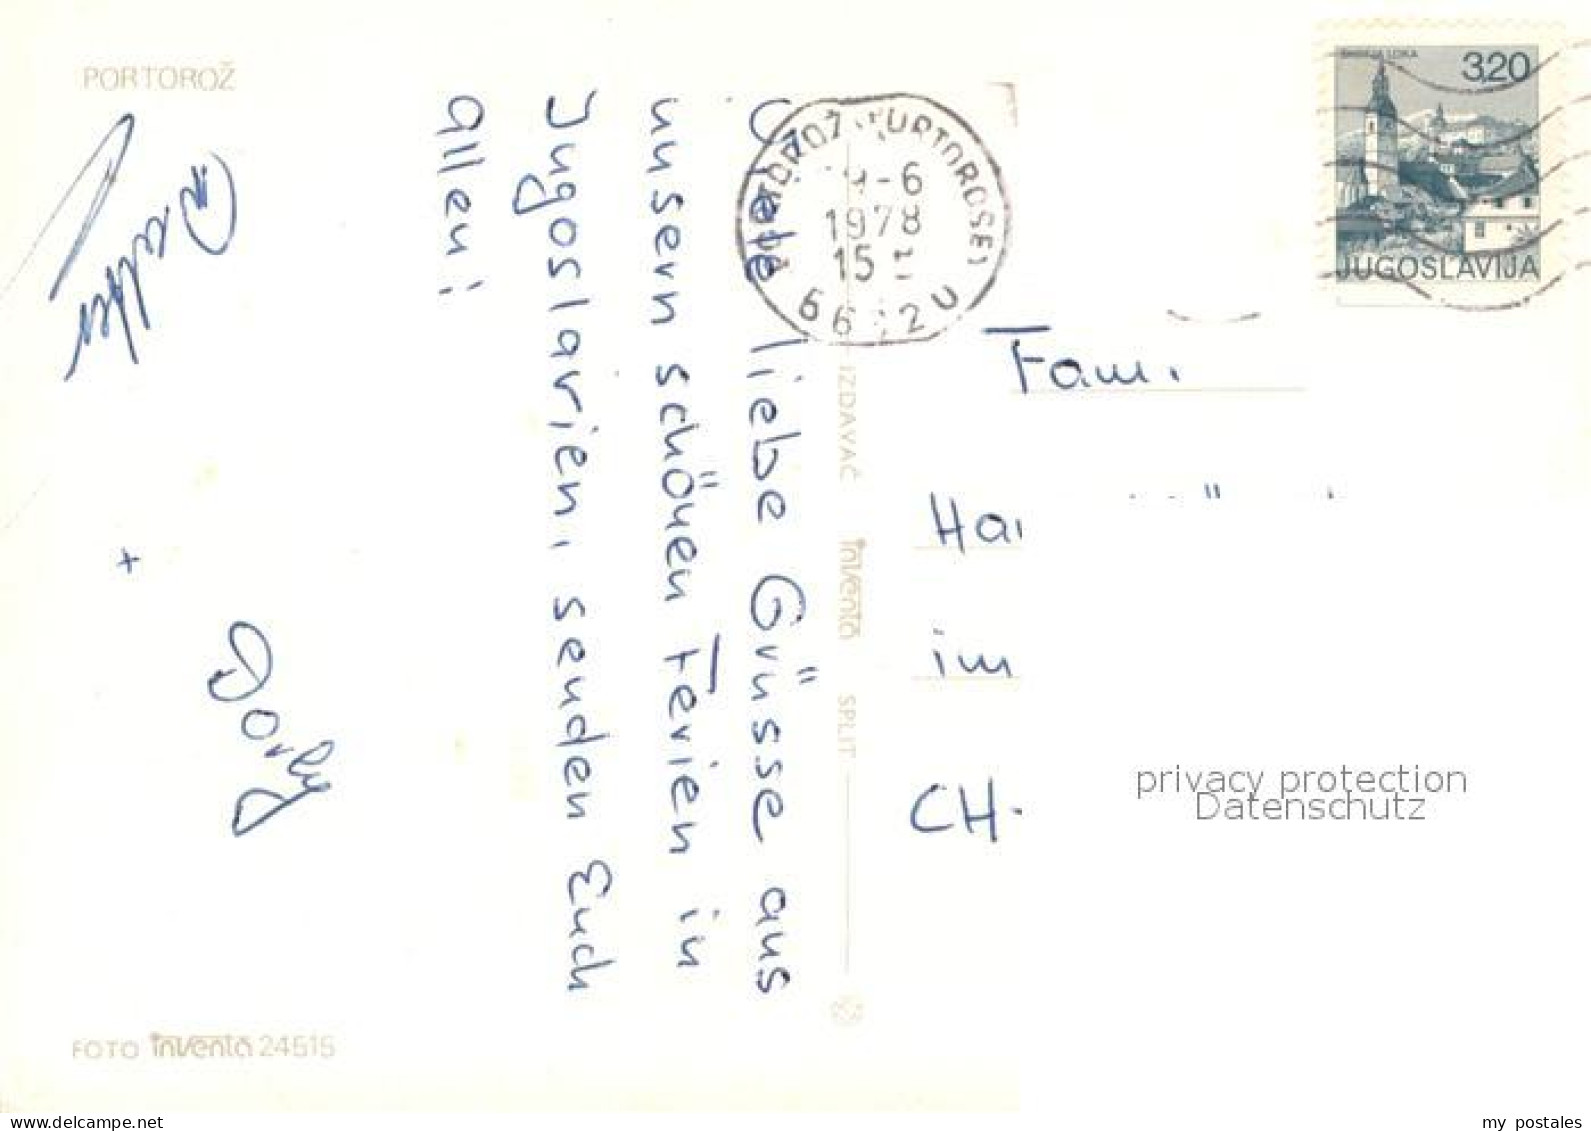 PORTOROŽ
Viele liebe Grüsse aus
unsern schönen Ferien in
Jugoslavien, senden Euch
allen!
+ Dorly
FOTO inventa 24515
IZDAVAČ inventa SPLIT
PORTOROŽ (PORTOROSE)
9-6
1978
15
ŠKOFJA LOKA
3,20
JUGOSLAVIJA
Fam.
Ha
im
CH-
privacy protection
Datenschutz
www.delcampe.net
my_postales